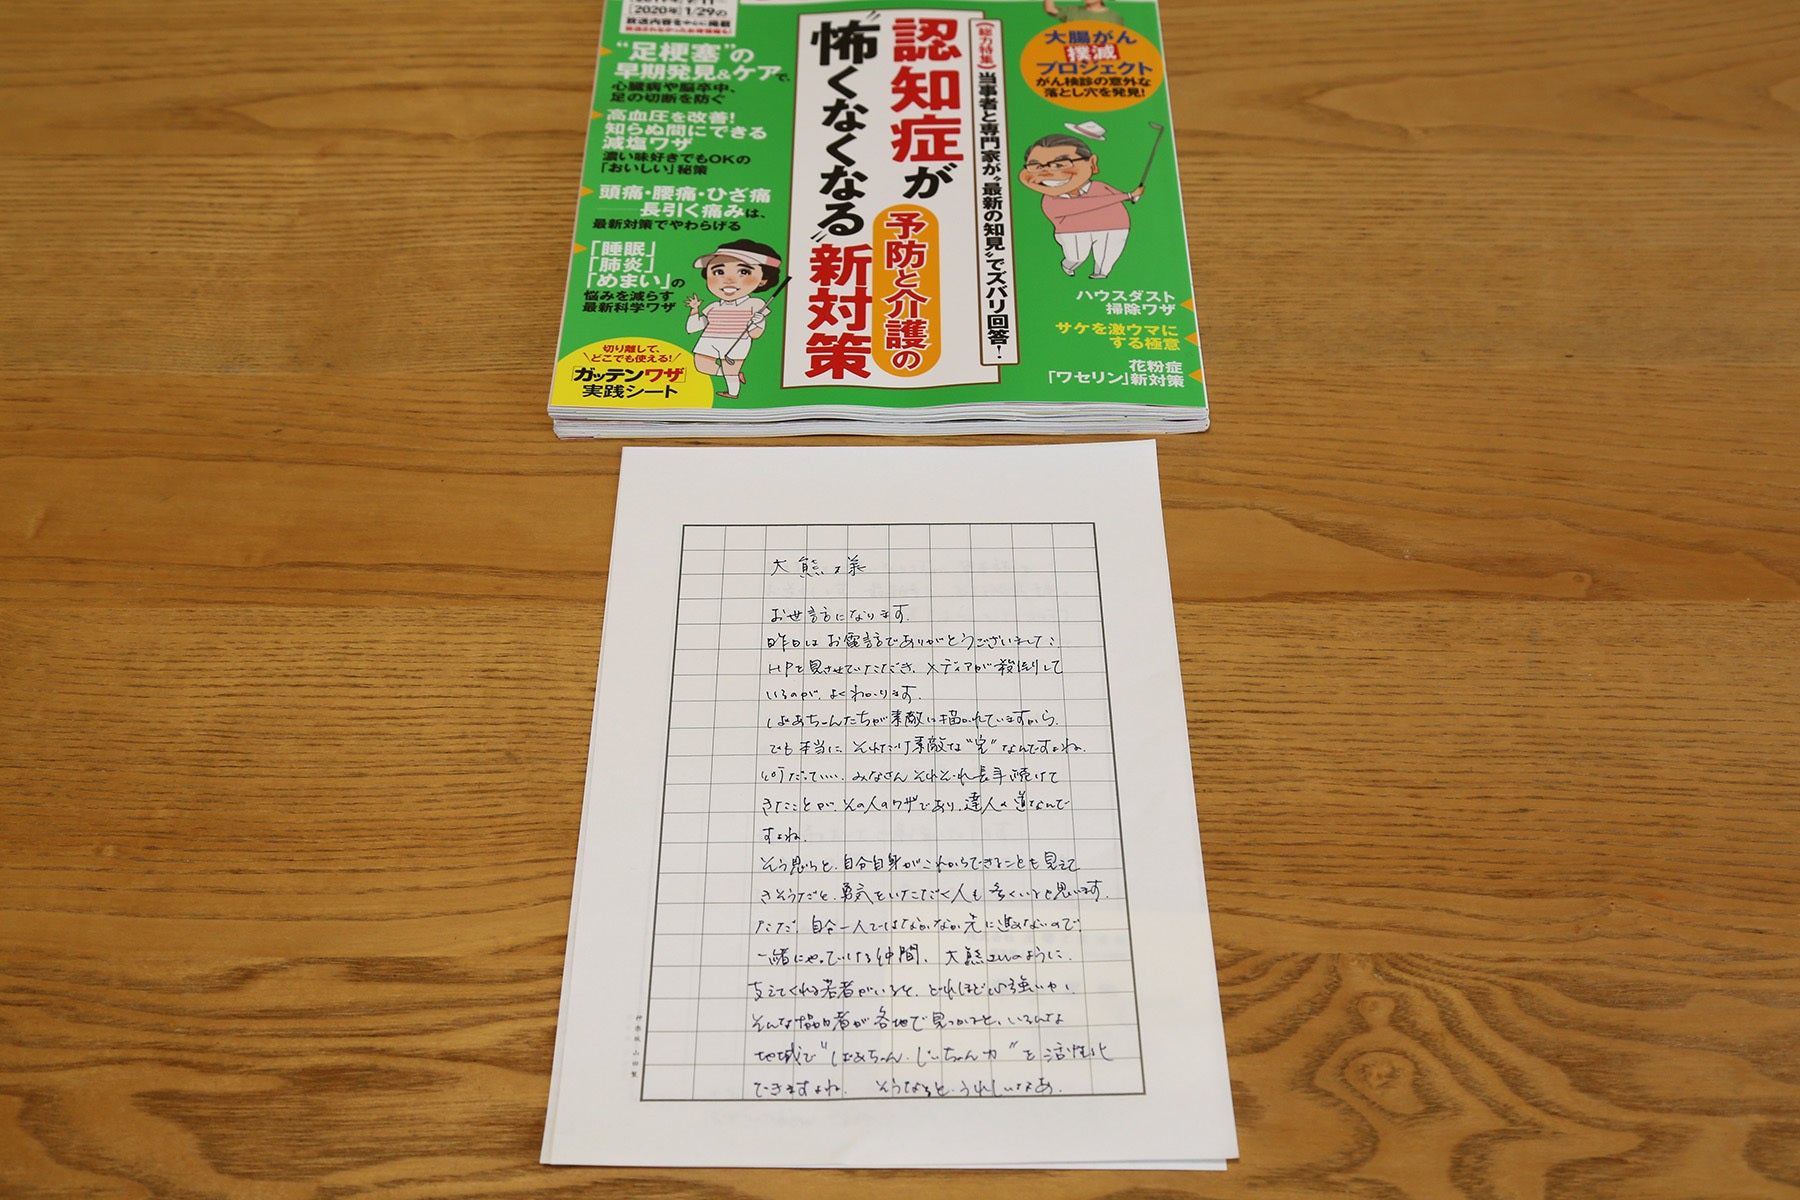 [2020年]1/29の
放送内容を中心に掲載
“足梗塞”の
早期発見&ケアで、
心臓病や脳卒中、
足の切断を防ぐ
高血圧を改善!
知らぬ間にできる
減塩ワザ
濃い味好きでもOKの
「おいしい」秘策
頭痛・腰痛・ひざ痛
長引く痛みは、
最新対策でやわらげる
「睡眠」
「肺炎」
「めまい」の
悩みを減らす
最新科学ワザ
切り離して、
どこでも使える!
「ガッテンワザ」
実践シート
《総力特集》当事者と専門家が“最新の知見”でズバリ回答!
認知症が
予防と介護の
“怖くなくなる”新対策
大腸がん
撲滅
プロジェクト
がん検診の意外な
落とし穴を発見!
ハウスダスト
掃除ワザ
サケを激ウマに
する極意
花粉症
「ワセリン」新対策
大熊様
お世話になります。
昨日はお電話でありがとうございました。
HPを見させていただき、メディアが殺到して
いるのが、よくわかります。
ばあちゃんたちが素敵に描かれていますから。
でも本当に、それだけ素敵な“宝”なんですよね。
何だっていい、みなさんそれぞれ長年続けて
きたことが、その人のワザであり、達人の道なんで
すよね。
そう思うと、自分自身がこれからできることも見えて
きそうだと、勇気をいただく人も多くいると思います。
ただ、自分一人ではなかなか先に進めないので、
一緒にやっていける仲間、大熊さんのように、
支えてくれる若者がいると、どれほど心強いか。
そんな協力者が各地で見つかると、いろんな
地域で“ばあちゃん、じいちゃん力”を活性化
できますよね。 そうなると、うれしいなあ。
神楽坂 山田製